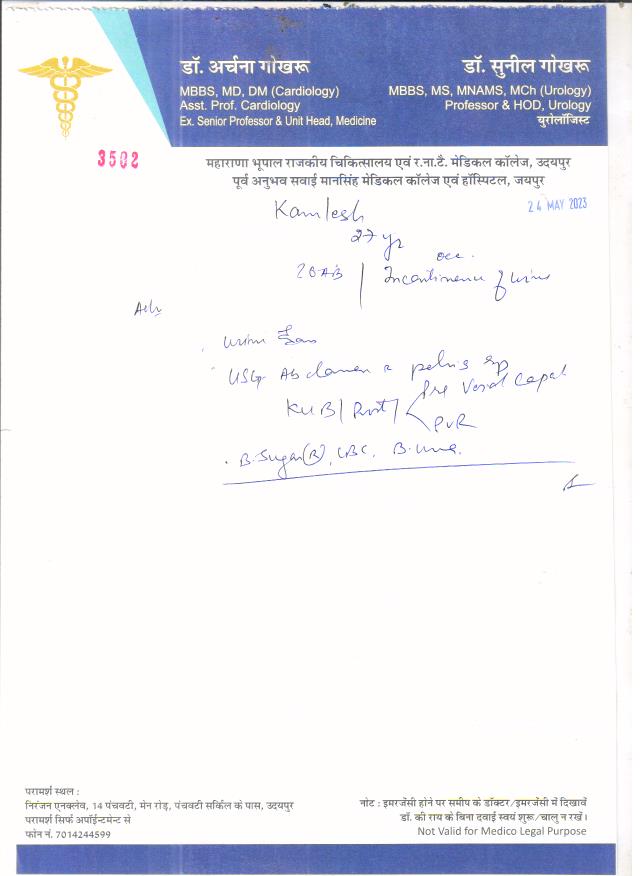 डॉ. अर्चना गोखरू
MBBS, MD, DM (Cardiology)
Asst. Prof. Cardiology
Ex. Senior Professor & Unit Head, Medicine
डॉ. सुनील गोखरू
MBBS, MS, MNAMS, MCh (Urology)
Professor & HOD, Urology
युरोलॉजिस्ट
3502
महाराणा भूपाल राजकीय चिकित्सालय एवं र.ना.टै. मेडिकल कॉलेज, उदयपुर
पूर्व अनुभव सवाई मानसिंह मेडिकल कॉलेज एवं हॉस्पिटल, जयपुर
24 MAY 2023
Kamlesh
27 yr
occ.
Incontinence of urine
USG Abdomen & pelvis
KUB / Prost / Pre Void Capat
PVR
B. Sugar (R), CBC, B. Urea.
परामर्श स्थल :
निरंजन एनक्लेव, 14 पंचवटी, मेन रोड़, पंचवटी सर्किल के पास, उदयपुर
परामर्श सिर्फ अपॉईन्टमेन्ट से
फोन नं. 7014244599
नोट : इमरजेंसी होने पर समीप के डॉक्टर/इमरजेंसी में दिखावें
डॉ. की राय के बिना दवाई स्वयं शुरू/चालु न रखें।
Not Valid for Medico Legal Purpose